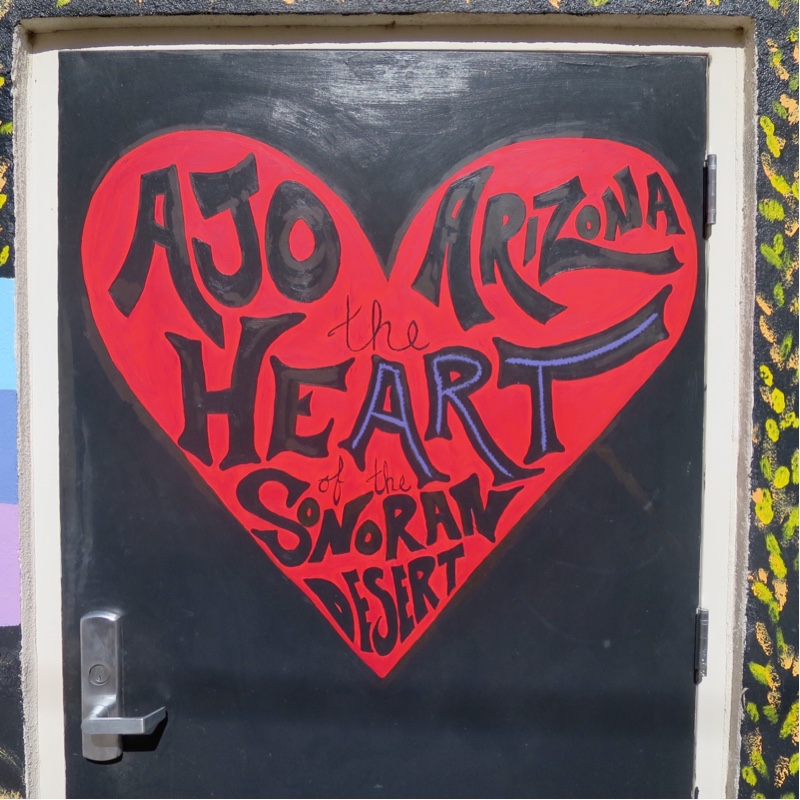 AJO ARIZONA
the
HEART
of the
SONORAN
DESERT